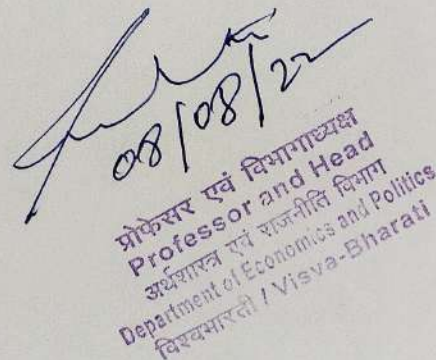 08/08/22
प्रोफेसर एवं विभागाध्यक्ष
Professor and Head
अर्थशास्त्र एवं राजनीति विभाग
Department of Economics and Politics
विश्वभारती / Visva-Bharati